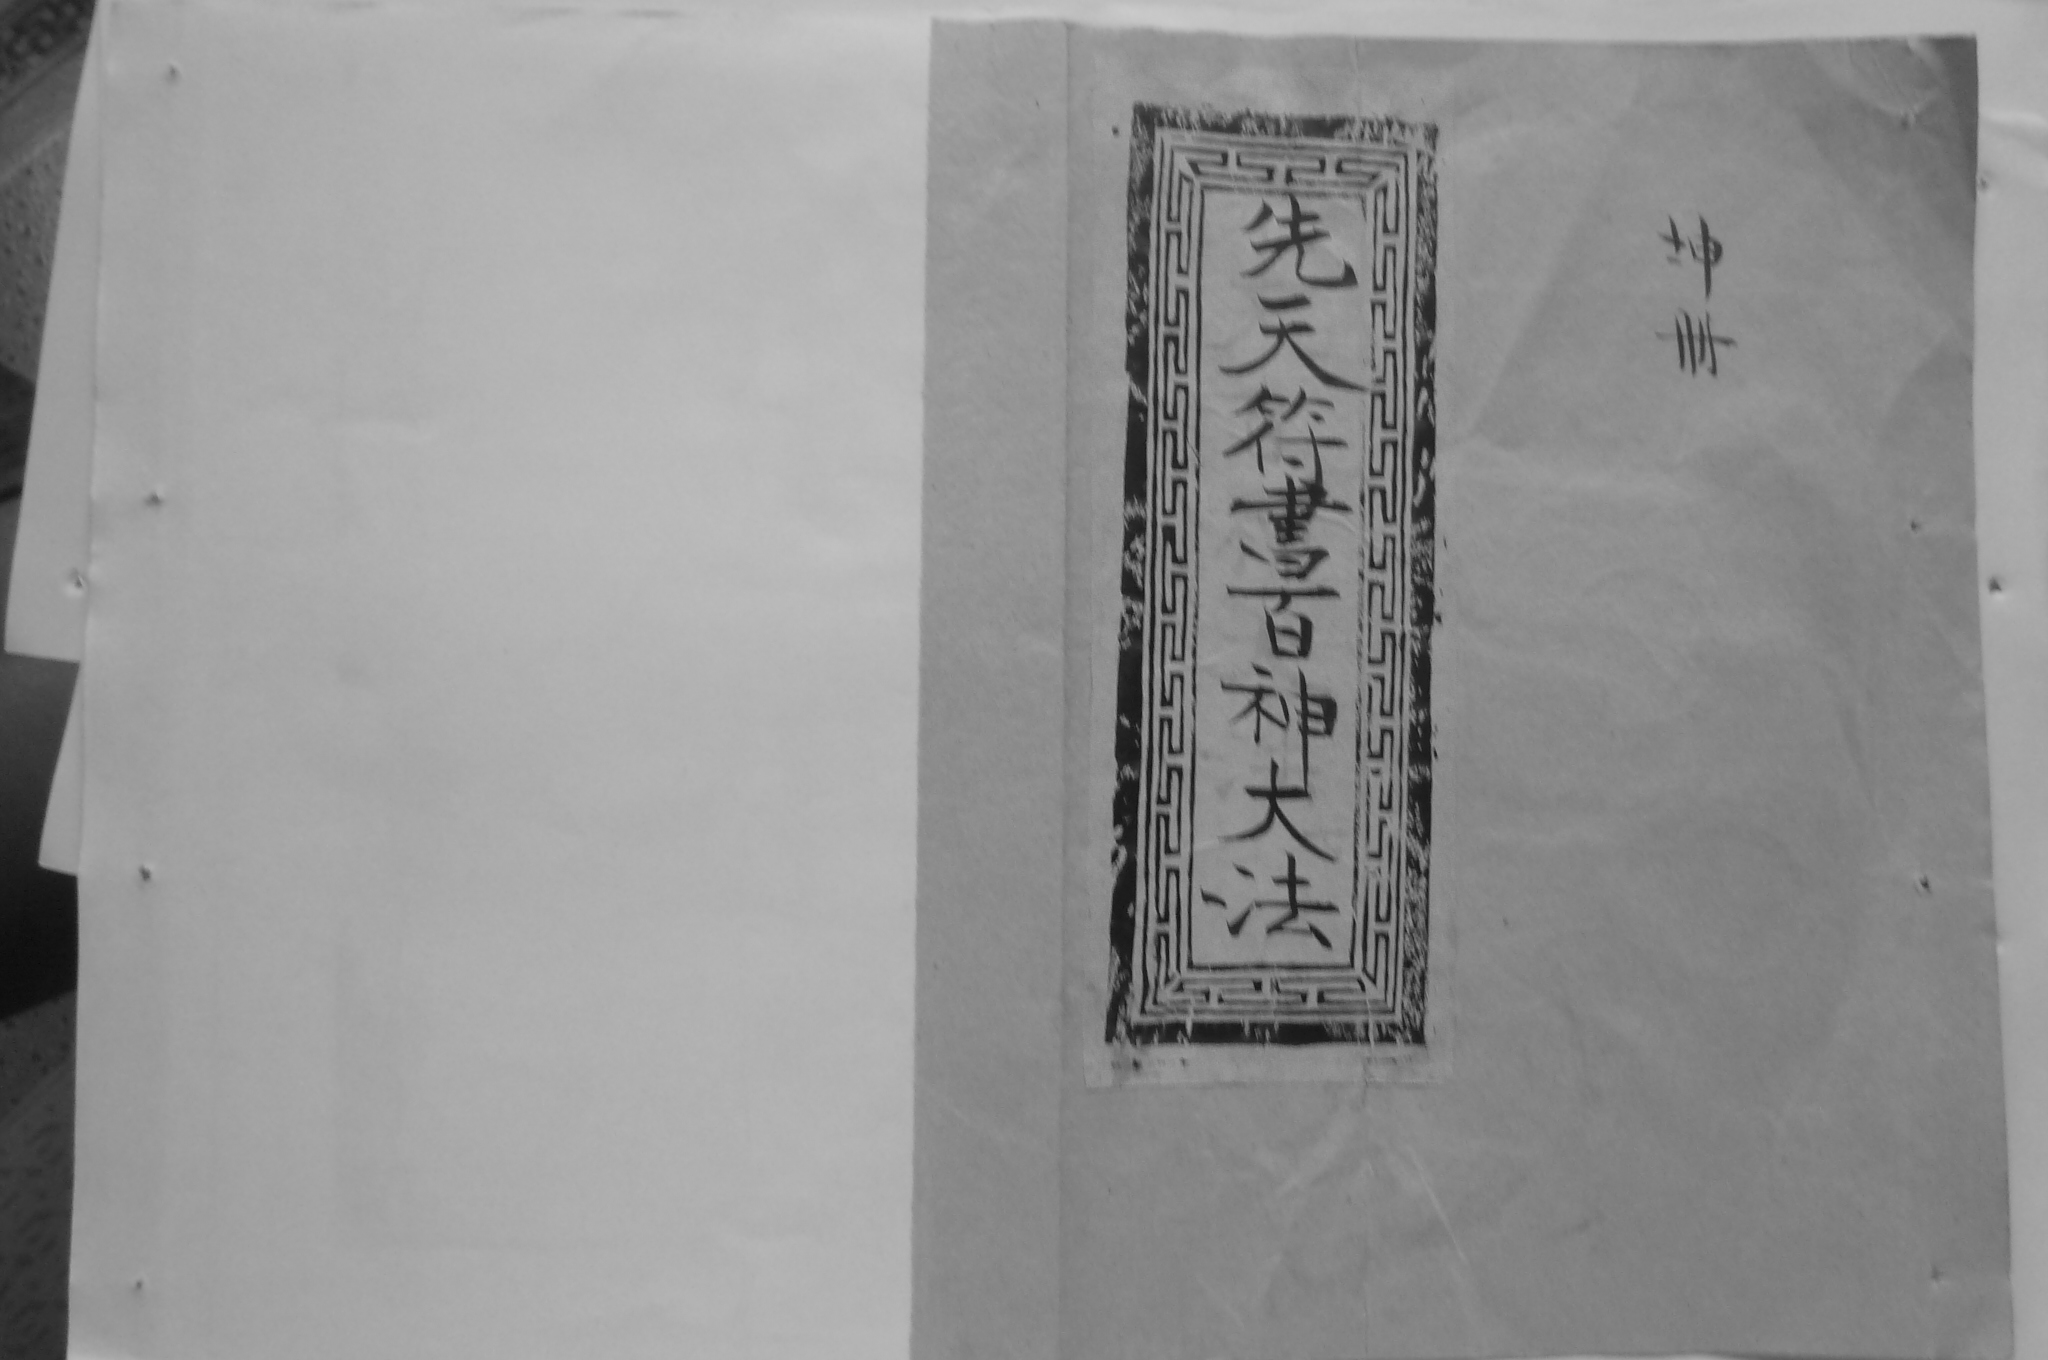 坤冊
先天符書百神大法